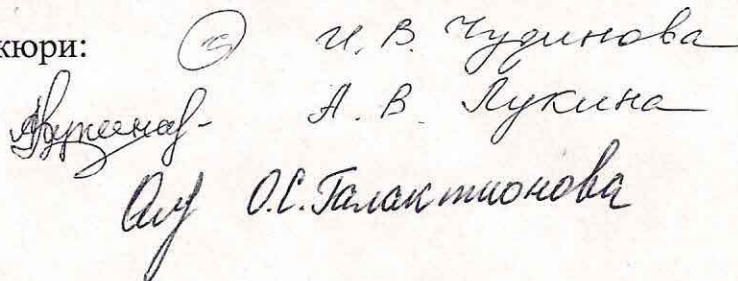 жюри: И. В. Чудинова
А. В. Лукина
О.С. Галактионова